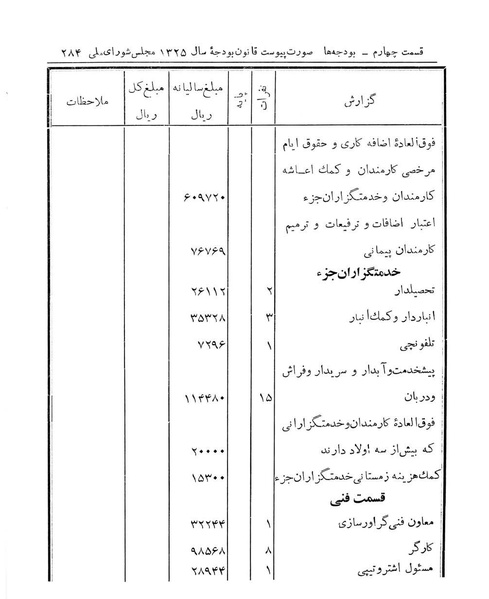 قسمت چهارم – بودجه‌ها صورت پیوست قانون بودجهٔ سال ۱۳۲۵ مجلس شورای ملی ۲۸۴
گزارش نفرات پایه مبلغ سالیانه ریال مبلغ کل ریال ملاحظات
فوق‌العادهٔ اضافه کاری و حقوق ایام
مرخصی کارمندان و کمک اعاشه
کارمندان و خدمتگزاران جزء ۶۰۹۷۲۰
اعتبار اضافات و ترفیعات و ترمیم
کارمندان پیمانی ۷۶۷۶۹
خدمتگزاران جزء
تحصیلدار ۲ ۲۶۱۱۲
انباردار و کمک انبار ۳ ۳۵۳۲۸
تلفونچی ۱ ۷۲۹۶
پیشخدمت و آبدار و سریدار و فراش
ودربان ۱۵ ۱۱۴۴۸۰
فوق‌العادهٔ کارمندان و خدمتگزارانی
که بیش از سه اولاد دارند ۲۰۰۰۰
کمک هزینه زمستانی خدمتگزاران جزء ۱۵۳۰۰
قسمت فنی
معاون فنی گراورسازی ۱ ۳۲۲۴۴
کارگر ۸ ۹۸۵۶۸
مسئول اشتروتیپی ۱ ۲۸۹۴۴